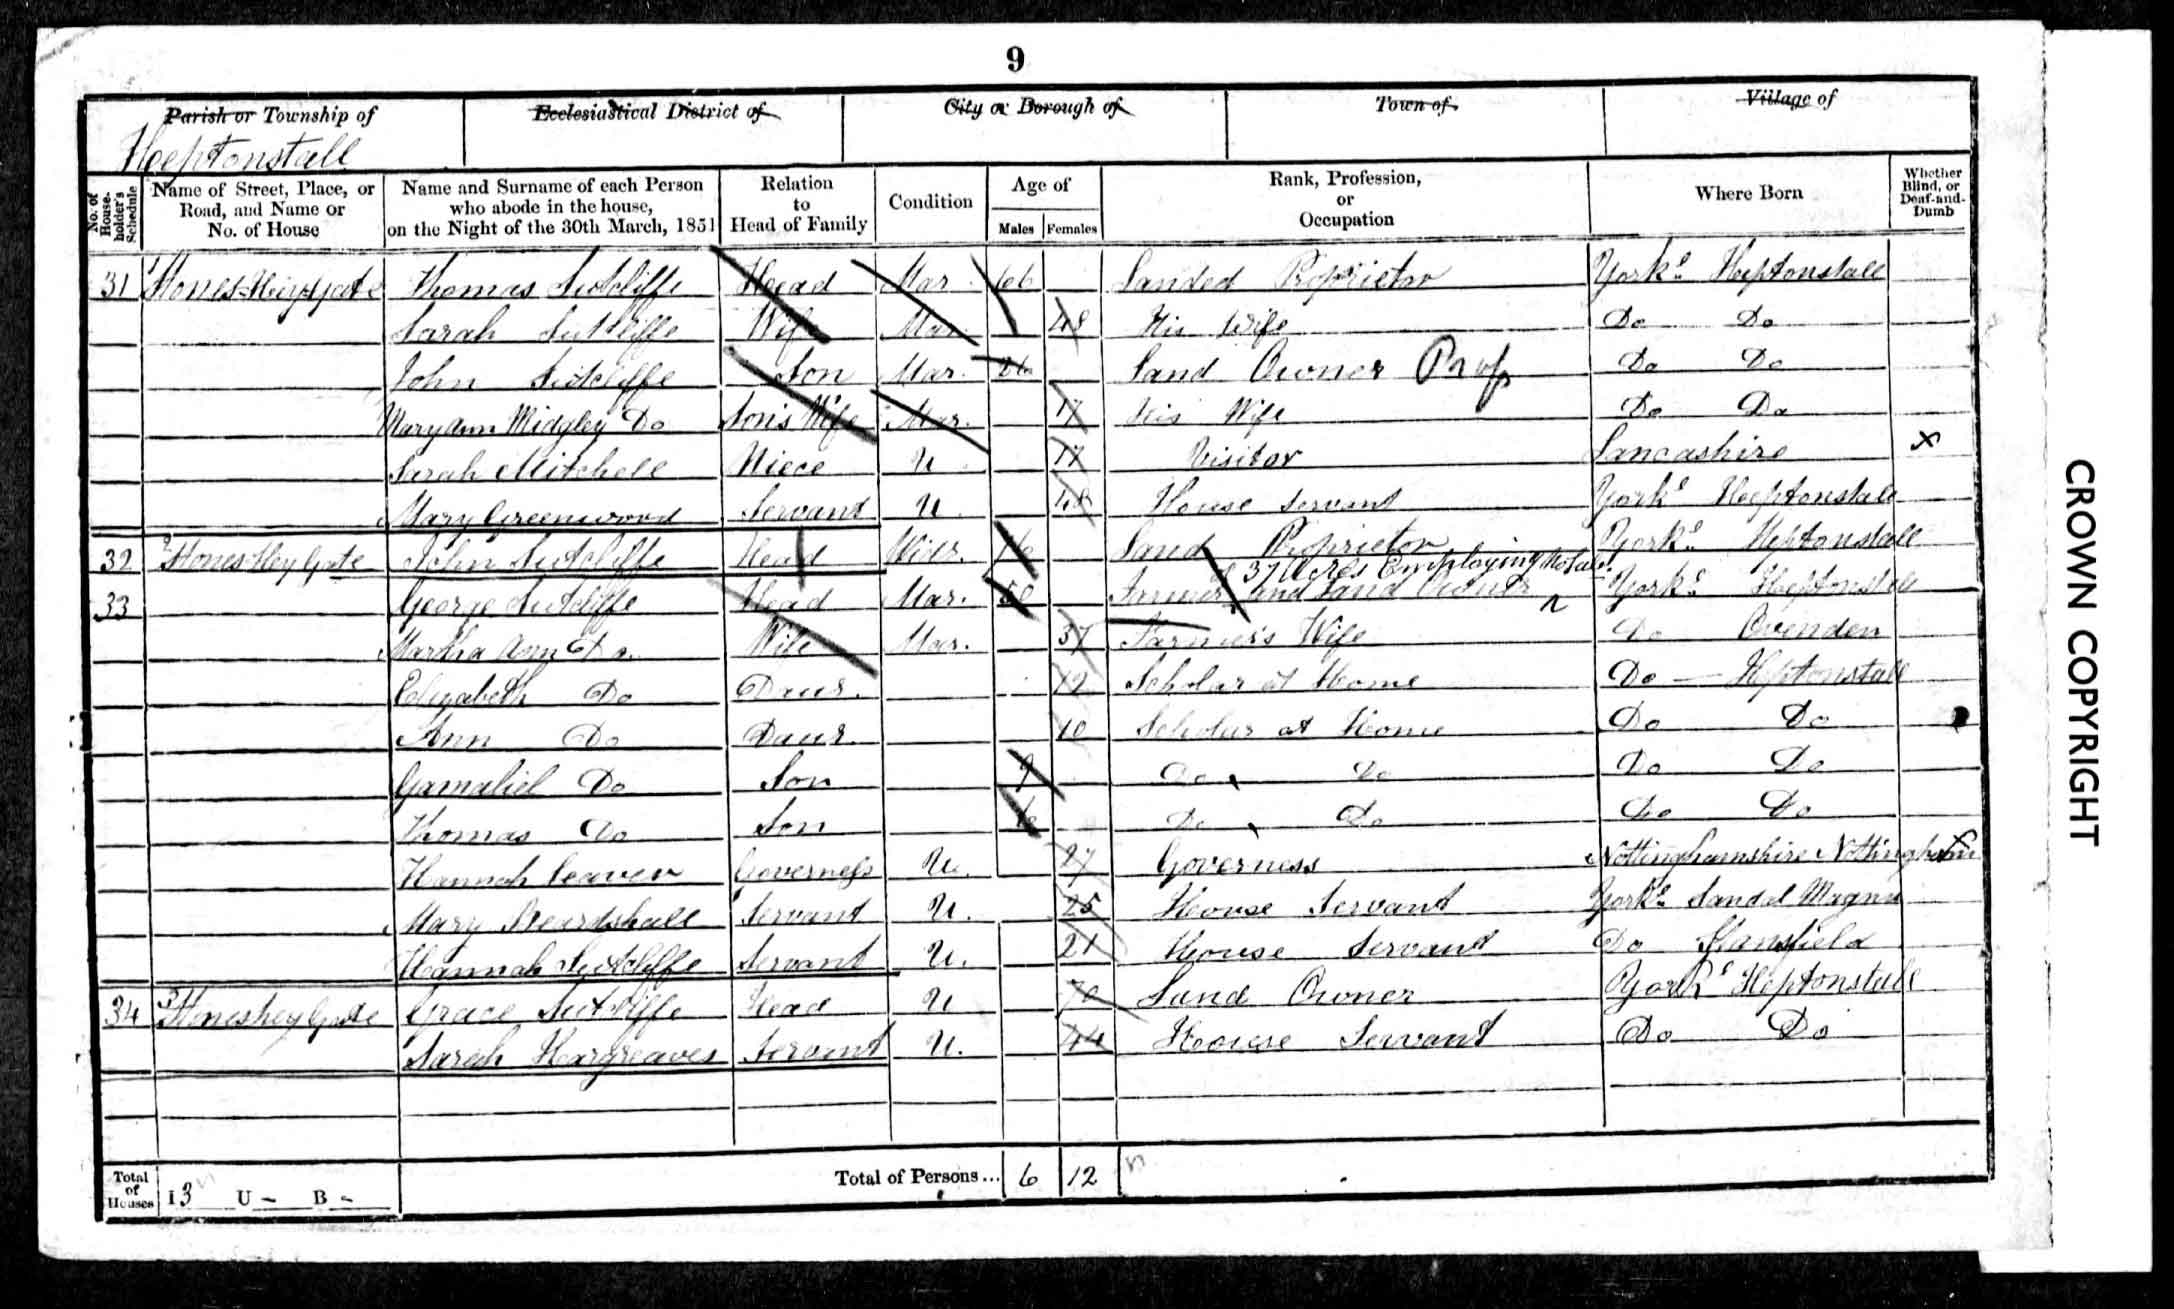 9
Parish or Township of Ecclesiastical District of City or Borough of Town of Village of
Heptonstall
No. of House-holder's Schedule Name of Street, Place, or Road, and Name or No. of House Name and Surname of each Person who abode in the house, on the Night of the 30th March, 1851 Relation to Head of Family Condition Age of Males Females Rank, Profession, or Occupation Where Born Whether Blind, or Deaf-and-Dumb
31 Stones Hey Gate Thomas Sutcliffe Head Mar 66 Landed Proprietor Yorks Heptonstall
Sarah Sutcliffe Wife Mar. 48 His Wife Do Do
John Sutcliffe Son Mar. 26 Land Owner Prop Do Do
Mary Ann Midgley Do Son's Wife Mar. 17 His Wife Do Do
Sarah Mitchell Niece U 17 Visitor Lancashire x
Mary Greenwood Servant U. 48 House Servant Yorks Heptonstall
32 2 Stones Hey Gate John Sutcliffe Head Widr. Land Proprietor Yorks Heptonstall
of 37 Acres Employing
33 George Sutcliffe Head Mar. 50 Farmer and Land Owner Yorks Heptonstall
Martha Ann Do. Wife Mar. 37 Farmer's Wife Do Ovenden
Elizabeth Do Daur. 12 Scholar at Home Do Heptonstall
Ann Do Daur. 10 Scholar at Home Do Do
Gamaliel Do Son 9 Do Do Do Do
Thomas Do Son 6 Do Do Do Do
Hannah Governess U. 27 Governess Nottinghamshire Nottingham
Mary Servant U. 25 House Servant Yorks Sandal Magna
Hannah Sutcliffe Servant U. 21 House Servant Do Stansfield
34 3 Stones hey Gate Grace Sutcliffe Head U 70 Land Owner Yorks Heptonstall
Sarah Hargreaves Servant U. 44 House Servant Do Do
Total of Houses I 3 U - B - Total of Persons... 6 12
CROWN COPYRIGHT